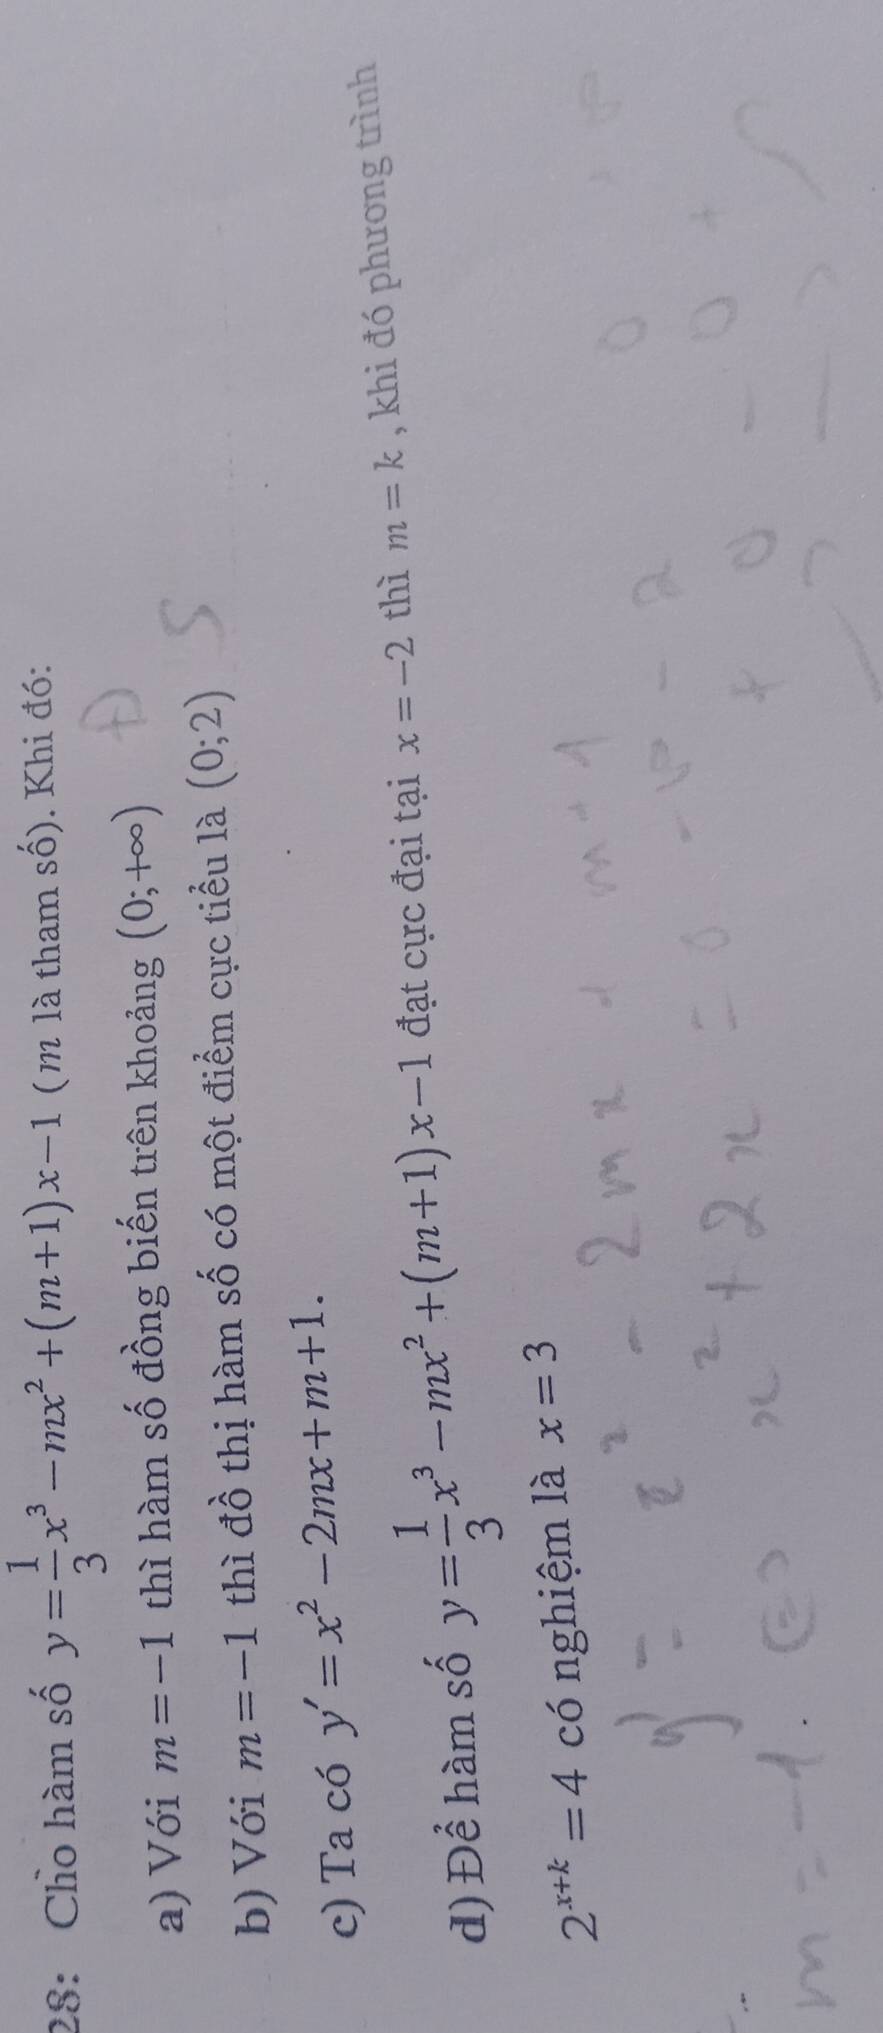 28: Cho hàm số y = \frac{1}{3}x^3 - mx^2 + (m+1)x - 1 (m là tham số). Khi đó:
a) Với m = -1 thì hàm số đồng biến trên khoảng (0;+∞) Đ
b) Với m = -1 thì đồ thị hàm số có một điểm cực tiểu là (0;2) S
c) Ta có y' = x^2 - 2mx + m + 1.
d) Để hàm số y = \frac{1}{3}x^3 - mx^2 + (m+1)x - 1 đạt cực đại tại x = -2 thì m = k, khi đó phương trình
2^{x+k} = 4 có nghiệm là x = 3
y' = x^2 - 2mx + m + 1
m = -1. x^2 + 2x = 0